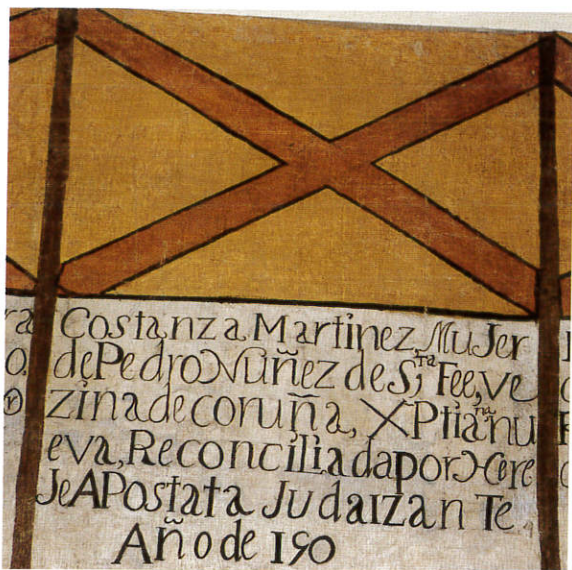 Costanza Martinez MuJer
de Pedro Nuñez de S,ta Fee, ve
zina de coruña, XPtiana nu
eva, Reconciliada por Here
Je APostata JudaizanTe
Año de 150